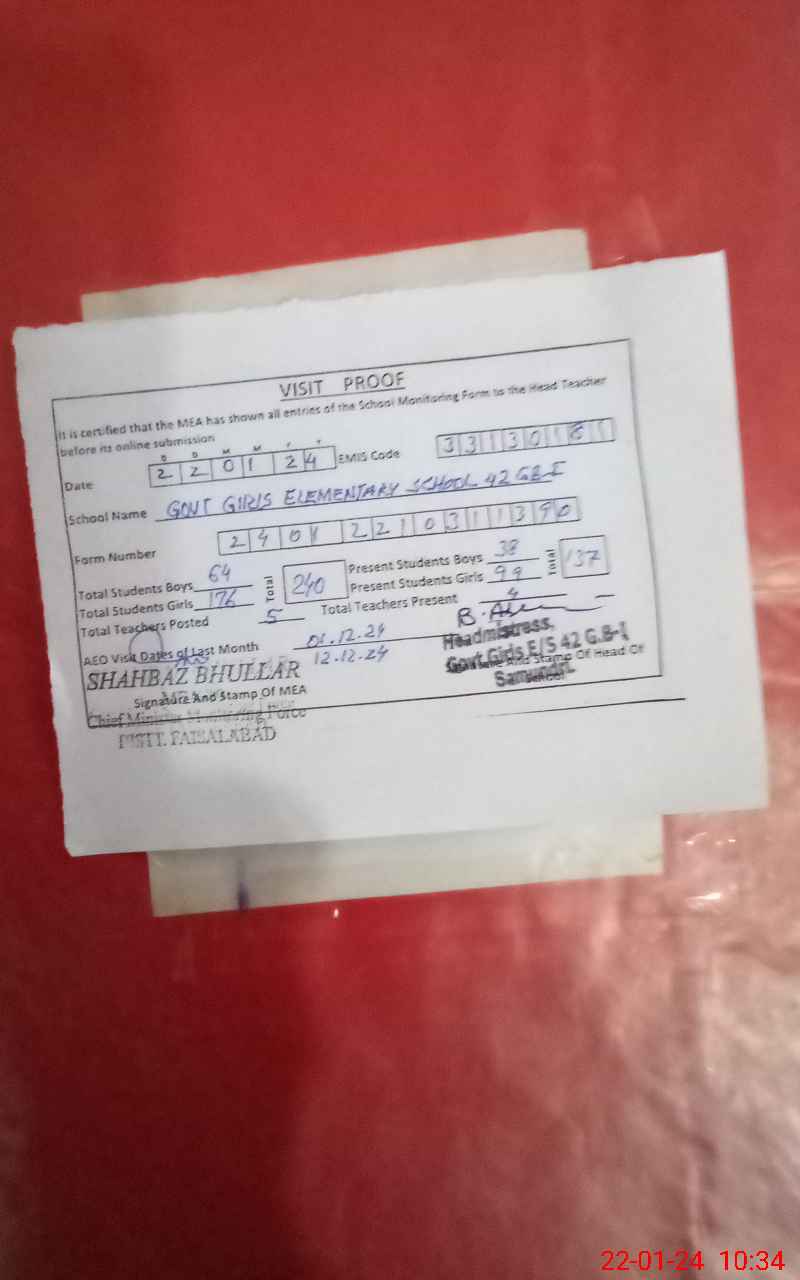 VISIT PROOF
It is certified that the MEA has shown all entries of the School Monitoring Form to the Head Teacher
before its online submission
D D M M Y Y
Date 2 2 0 1 2 4 EMIS Code 3 3 1 3 0
School Name GOVT GIRLS ELEMENTARY SCHOOL 42 GB-I
Form Number 2 4 0 1 2 2 1 0 3 1 1 3 9 0
Total Students Boys 64 Total 240 Present Students Boys 38 Total 137
Total Students Girls 176 Present Students Girls 99
Total Teachers Posted 5 Total Teachers Present 4
AEO Visit Dates of Last Month 01.12.24
12.12.24
SHAHBAZ BHULLAR
Signature And Stamp Of MEA
Chief Minister Monitoring Force
DISTT. FAISALABAD
Headmistress,
Govt Girls E/S 42 G.B-I
And Stamp Of Head Of
Samundri.
School
22-01-24 10:34